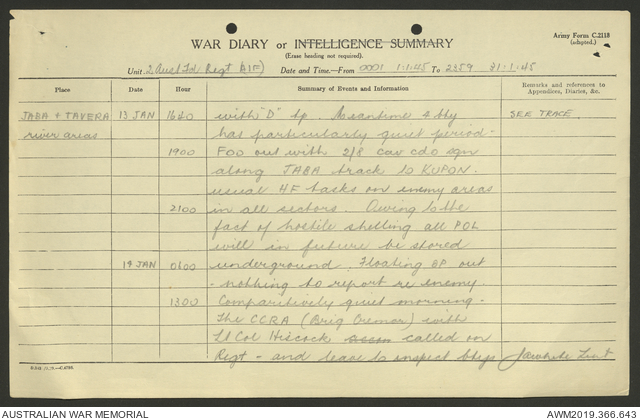 Army Form C.2118
(adapted.)
WAR DIARY or INTELLIGENCE SUMMARY
(Erase heading not required).
Unit 2 Aust Fd Regt (AIF) Date and Time—From 0001 1.1.45 To 2359 31.1.45
Place Date Hour Summary of Events and Information Remarks and references to Appendices, Diaries, &c.
JABA + TAVERA 13 JAN 1640 with "D" tp. Meantime 4 bty SEE TRACE.
river areas has particularly quiet period.
1900 FOO out with 2/8 cav cdo sqn
along JABA track to KUPON.
usual HF tasks on enemy areas
2100 in all sectors. Owing to the
fact of hostile shelling all POL
will in future be stored
14 JAN 0600 underground. Floating OP out
- nothing to report re enemy.
1300 Comparitively quiet morning -
The CCRA (Brig Cremor) with
Lt Col Hiscock called on
Regt - and leave to inspect btys Lieut
AUSTRALIAN WAR MEMORIAL AWM2019.366.643